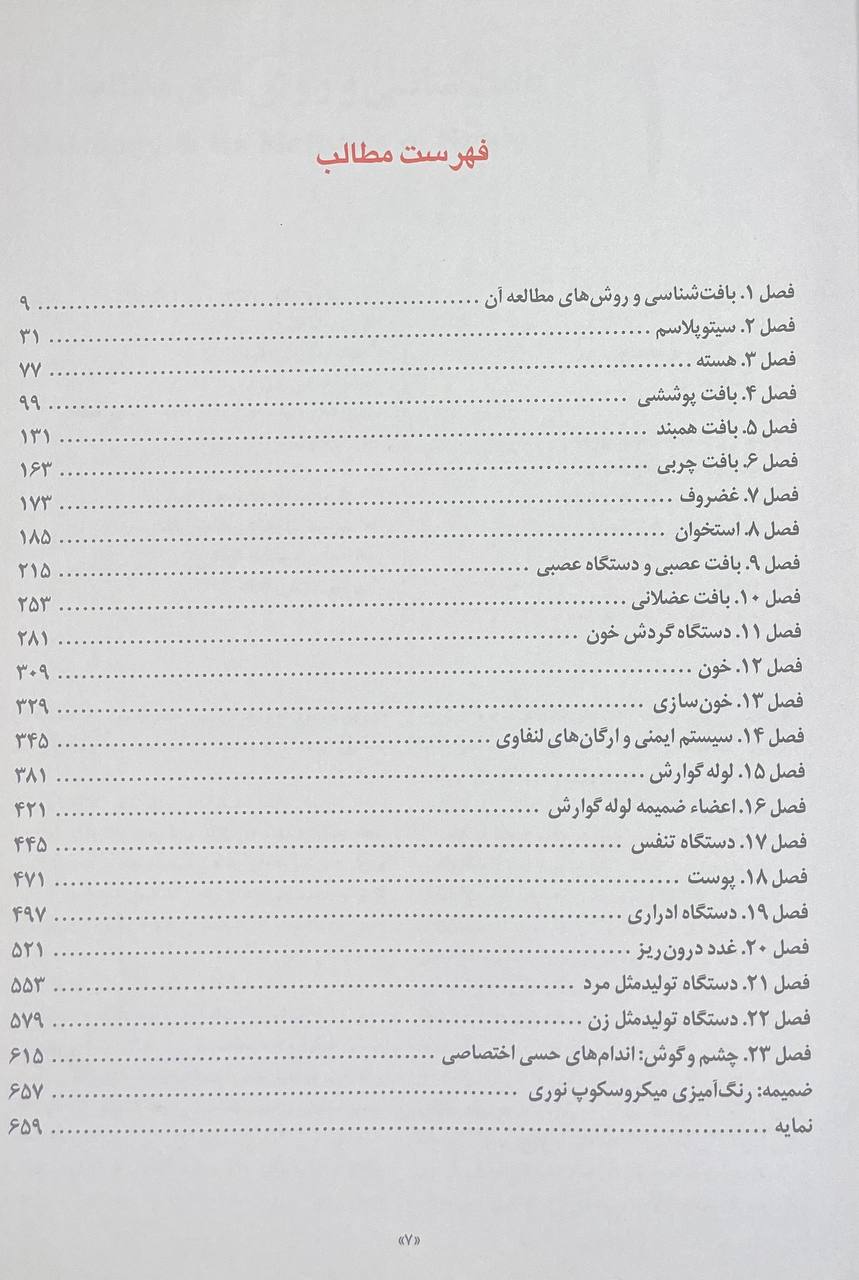 فهرست مطالب
فصل ۱. بافت‌شناسی و روش‌های مطالعه آن ........ ۹
فصل ۲. سیتوپلاسم ........ ۳۱
فصل ۳. هسته ........ ۷۷
فصل ۴. بافت پوششی ........ ۹۹
فصل ۵. بافت همبند ........ ۱۳۱
فصل ۶. بافت چربی ........ ۱۶۳
فصل ۷. غضروف ........ ۱۷۳
فصل ۸. استخوان ........ ۱۸۵
فصل ۹. بافت عصبی و دستگاه عصبی ........ ۲۱۵
فصل ۱۰. بافت عضلانی ........ ۲۵۳
فصل ۱۱. دستگاه گردش خون ........ ۲۸۱
فصل ۱۲. خون ........ ۳۰۹
فصل ۱۳. خون‌سازی ........ ۳۲۹
فصل ۱۴. سیستم ایمنی و ارگان‌های لنفاوی ........ ۳۴۵
فصل ۱۵. لوله گوارش ........ ۳۸۱
فصل ۱۶. اعضاء ضمیمه لوله گوارش ........ ۴۲۱
فصل ۱۷. دستگاه تنفس ........ ۴۴۵
فصل ۱۸. پوست ........ ۴۷۱
فصل ۱۹. دستگاه ادراری ........ ۴۹۷
فصل ۲۰. غدد درون‌ریز ........ ۵۲۱
فصل ۲۱. دستگاه تولیدمثل مرد ........ ۵۵۳
فصل ۲۲. دستگاه تولیدمثل زن ........ ۵۷۹
فصل ۲۳. چشم و گوش: اندام‌های حسی اختصاصی ........ ۶۱۵
ضمیمه: رنگ‌آمیزی میکروسکوپ نوری ........ ۶۵۷
نمایه ........ ۶۵۹
«۷»